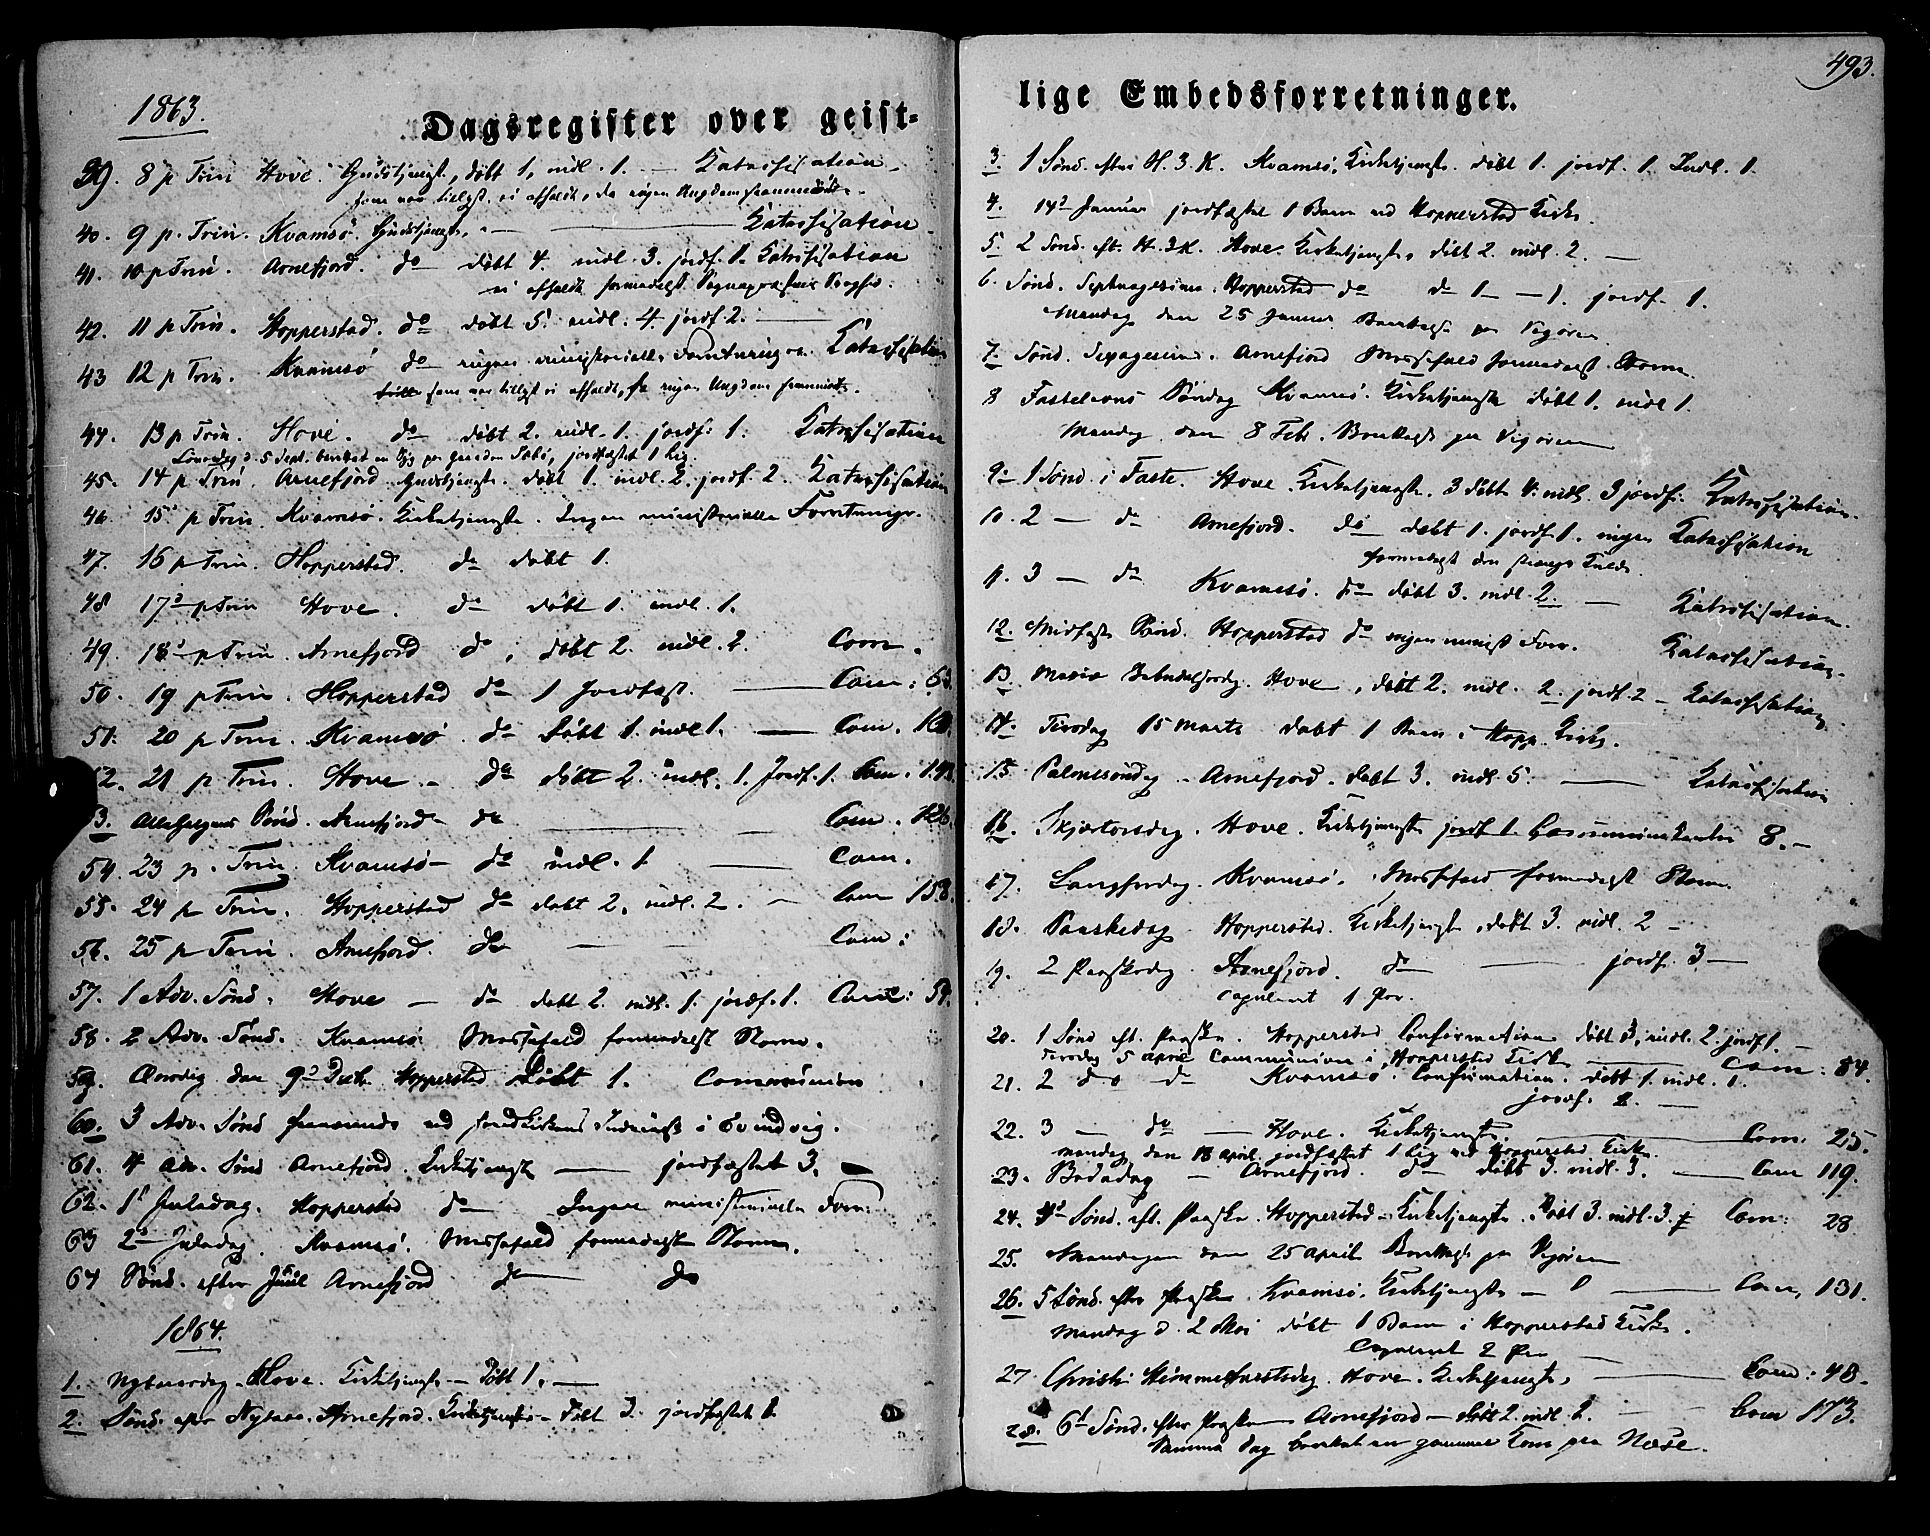 1863.
Dagsregister over geist-
39. 8 p Trin Hove. Gudstjenest, døbt 1, indl. 1. — Katechisation
som var tillyst, ei afholdt, da ingen Ungdom fremmødte.
40. 9 p. Trin. Kvamsö. Gudstjeneste, — Katechisation
41. 10 p Trin. Arnefjord. do døbt 4. indl. 3. jordf. 1. Katechisation
ei afholdt formedelst Sognepræstens
42. 11 p Trin. Hopperstad. do døbt 5. indl. 4. jordf 2. —
43 12 p Trin. Kvamsö do ingen ministerielle Forretninger. Katechisation
som var tillyst ei afholdt, da ingen Ungdom fremmødte.
44. 13 p Trin. Hove. do døbt 2. indl. 1. jordf: 1. Katechisation
Løverdag d. 5 Sept. jordfæstet 1 Lig.
45. 14 p Trin. Arnefjord Gudstjeneste. døbt 1. indl. 2. jordf. 2. Katechisation
46. 15 p Trin. Kvamsö. Kirketjeneste. Ingen ministerielle Forretninger.
47. 16 p Trin. Hopperstad. do døbt 1.
48 17 p Trin Hove. do døbt 1. indl. 1.
49. 18 p Trin. Arnefjord do, døbt 2. indl. 2. Com.
50. 19 p Trin. Hopperstad do 1 Jordfæst. — Com: 63.
51. 20 p Trin. Kvamsö. do Døbt 1. indl 1. — Com.
52. 21 p Trin. Hove — do døbt 2. indl. 1. Jordf. 1. Com.
53. Allehelgens Sönd. Arnefjord — do — Com. 126.
54. 23 p. Trin. Kvamsö — do indl. 1 — Com.
55. 24 p Trin. Hopperstad do døbt 2, indl. 2. — Com 158.
56. 25 p Trin. Arnefjord. do — — Com:
57. 1 Adv. Sönd. Hove — do døbt 2. indl. 1. jordf. 1. Com: 54.
58. 2 Adv. Sönd. Kvamsö Messefald formedelst Storm.
59. Onsdag den 9d Decb. Hopperstad Döbt 1. Communion
60. 3 Adv. Sönd ved i Evindvig.
61. 4 Adv. Sönd Arnefjord. Kirketjenest — jordfæstet 3. —
62. 1 Juledag. Hopperstad do — Ingen ministerielle Forr.
63 2 Juledag. Kvamsö. Messefald formedelst Storm.
64 Sönd. efter Juul Arnefjord do — do
1864.
1. Nytaarsdag. Hove. Kirketjeneste — Döbt 1. —
2. Sönd. efter Nytaar. Arnefjord. Kirketjeneste — Döbt 3. jordfæstet 1
493.
lige Embedsforretninger.
3. 1 Sönd. efter H. 3. K. Kvamsö. Kirketjeneste. døbt 1. jordf. 1. Indl. 1.
4. 14d Januar jordfæstet 1 Barn ved Hopperstad Kirke.
5. 2 Sönd. eft. H. 3 K. Hove. Kirketjeneste, døbt 2. indl. 2. —
6. Sönd. Septuagesima. Hopperstad do do 1 — 1. jordf. 1.
Mandag den 25 Januar Barnedaab paa Vigören.
7. Sönd. Sexagesima. Arnefjord Messefald formedelst Storm.
8 Fastelavns Söndag Kvamsö. Kirketjeneste døbt 1. indl 1.
Mandag den 8 Feb. paa Vigören
9. 1 Sönd. i Faste. Hove Kirketjeneste. 3 døbte 4. indl. 3 jordf: Katechisation.
10. 2 — do Arnefjord. do døbt 1. jordf. 1. ingen Katechisation
formedelst den strenge Kulde.
11. 3 — do Kvamsö. do døbt 3. indl. 2. — Katechisation.
12. Midfaste Sönd. Hopperstad do ingen minist Forr. Katechisation.
13. Mariæ Bebudelsesdag. Hove, døbt 2. indl. 2. jordf. 2 — Katechisation.
14. Tirsdag 15 Marts døbt 1 Barn i Hopp. Kirke.
15 Palmesöndag — Arnefjord. døbt 3. indl. 5. — Katechisation
16. Skjærtorsdag. Hove. Kirketjeneste jordf 1. Communikanter 8. —
17. Langfredag. Kvamsö. Messefald formedelst Storm.
18. Paaskedag. Hopperstad. Kirketjenest, døbt 3. indl. 2 —
19. 2 Paaskedag. Arnefjord. do — jordf. 3. —
copuleret 1 Par.
20. 1 Sönd eft. Paaske. Hopperstad Confirmation døbt 3, indl. 2. jordf 1. —
Tirsdag 5 April Communion i Hopperstad Kirke — Com: 84.
21. 2 do do Kvamsö. Confirmation. døbt 1. indl. 1.
jordf. 2. —
22. 3 — do — Hove. Kirketjeneste — Com. 25.
Mandag den 18 April jordfæstet 1 Lig ved Hopperstad Kirke.
23. Bededag — Arnefjord. do døbt 3. indl. 3. — Com 119.
24. 4d Sönd. eft. Paaske. Hopperstad — Kirketjeneste. Döbt 3. indl. 3. Com: 28
25. Mandagen den 25 April paa Vigören
26. 5 Sönd. efter Paaske. Kvamsö. Kirketjeneste — Com, 131.
Mandag d. 2 Mai døbt 1 Barn i Hopperstad Kirke.
Copuleret 2 Par —
27 Christi Himmelfartsdag. Hove. Kirketjeneste, — Com: 48.
28. 6d Sönd. efter Paaske — Arnefjord — døbt 2. indl. 2. — Com 173.
Samme Dag berettet en gammel Kone paa Næse.